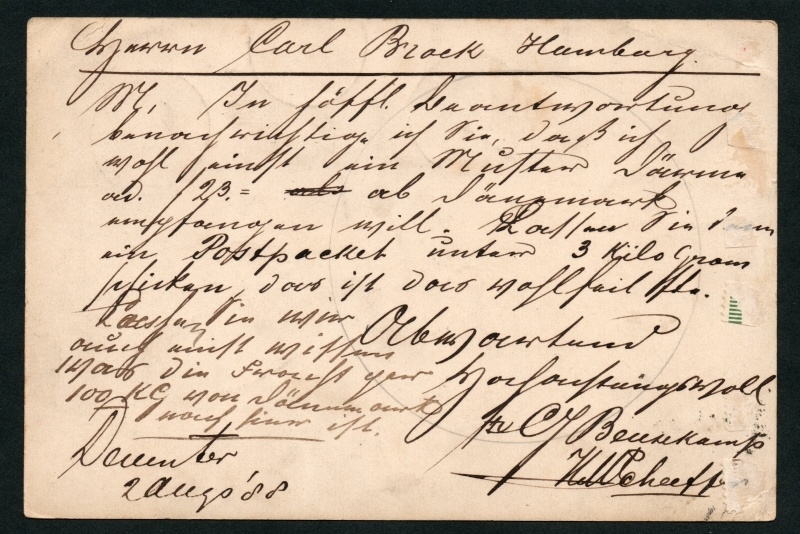 Herrn Carl Brock Hamburg.
M. In höffl. Beantwortung
benachrichtige ich Sie, daß ich
wohl einst ein Muster Därme
ad. 23.= ab Dänemark
empfangen will. Lassen Sie dann
ein Postpacket unter 3 Kilo Gram
schicken, das ist das wohlfeilste.
Lassen Sie mir
auch einst wissen
was die Fracht per
100 KG von Dänemark
nach hier ist.
Abwartend
Hochachtungsvoll
CJ Beusekamp
Deventer
2 Augs '88